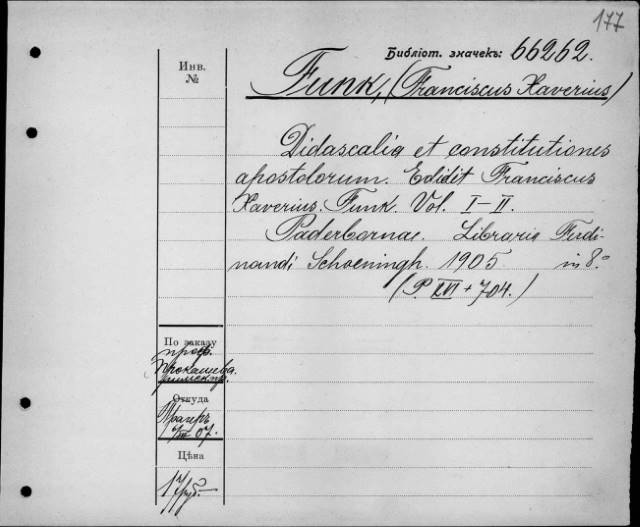 177
Библіот. значекъ: 66262.
Инв.
№
Funk, (Franciscus Xaverius)
Didascalia et constitutiones
apostolorum. Edidit Franciscus
Xaverius. Funk. Vol. I-II.
Paderbornae. Libraria Ferdi-
nandi Schoeningh. 1905 in 8.º
(P. LVI + 704.)
По заказу
проф.
Откуда
07.
Цѣна
руб.